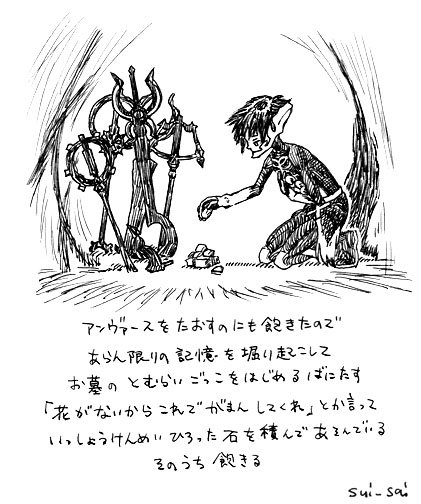 アンヴァースをたおすのにも飽きたので
あらん限りの記憶を掘り起こして
お墓のとむらいごっこをはじめるばにたす
「花がないからこれでがまんしてくれ」とか言って
いっしょうけんめいひろった石を積んであそんでいる
そのうち飽きる
sui-sai